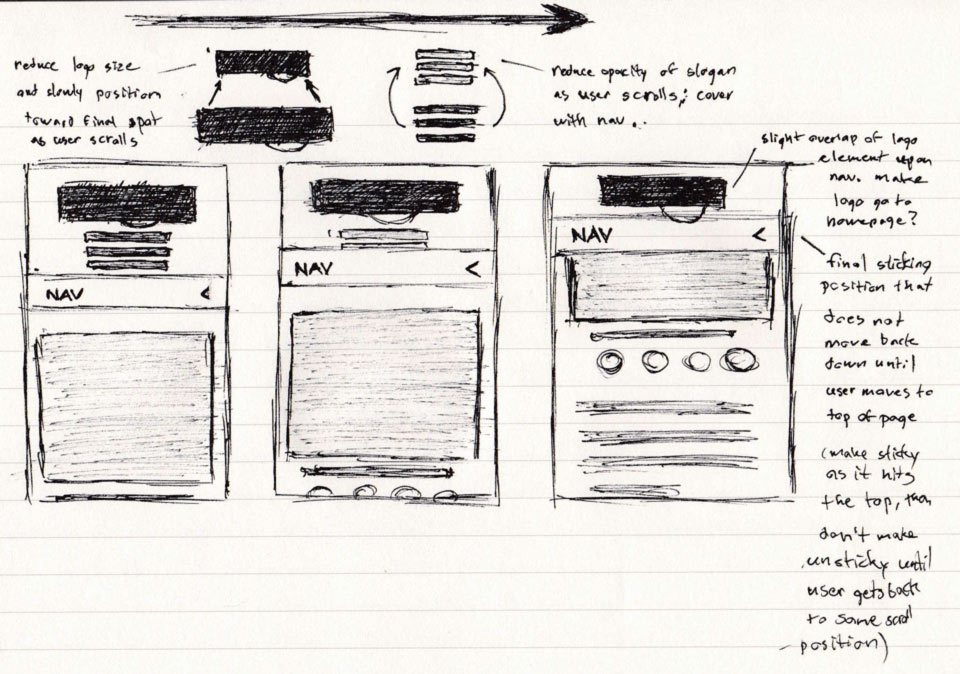 reduce logo size
and slowly position
toward final spot
as user scrolls
reduce opacity of slogan
as user scrolls; cover
with nav...
slight overlap of logo
element upon
nav. make
logo go to
homepage?
NAV <
NAV <
NAV <
final sticking
position that
does not
move back
down until
user moves to
top of page
(make sticky
as it hits
the top, then
don't make
unsticky until
user gets back
to same scroll
position)